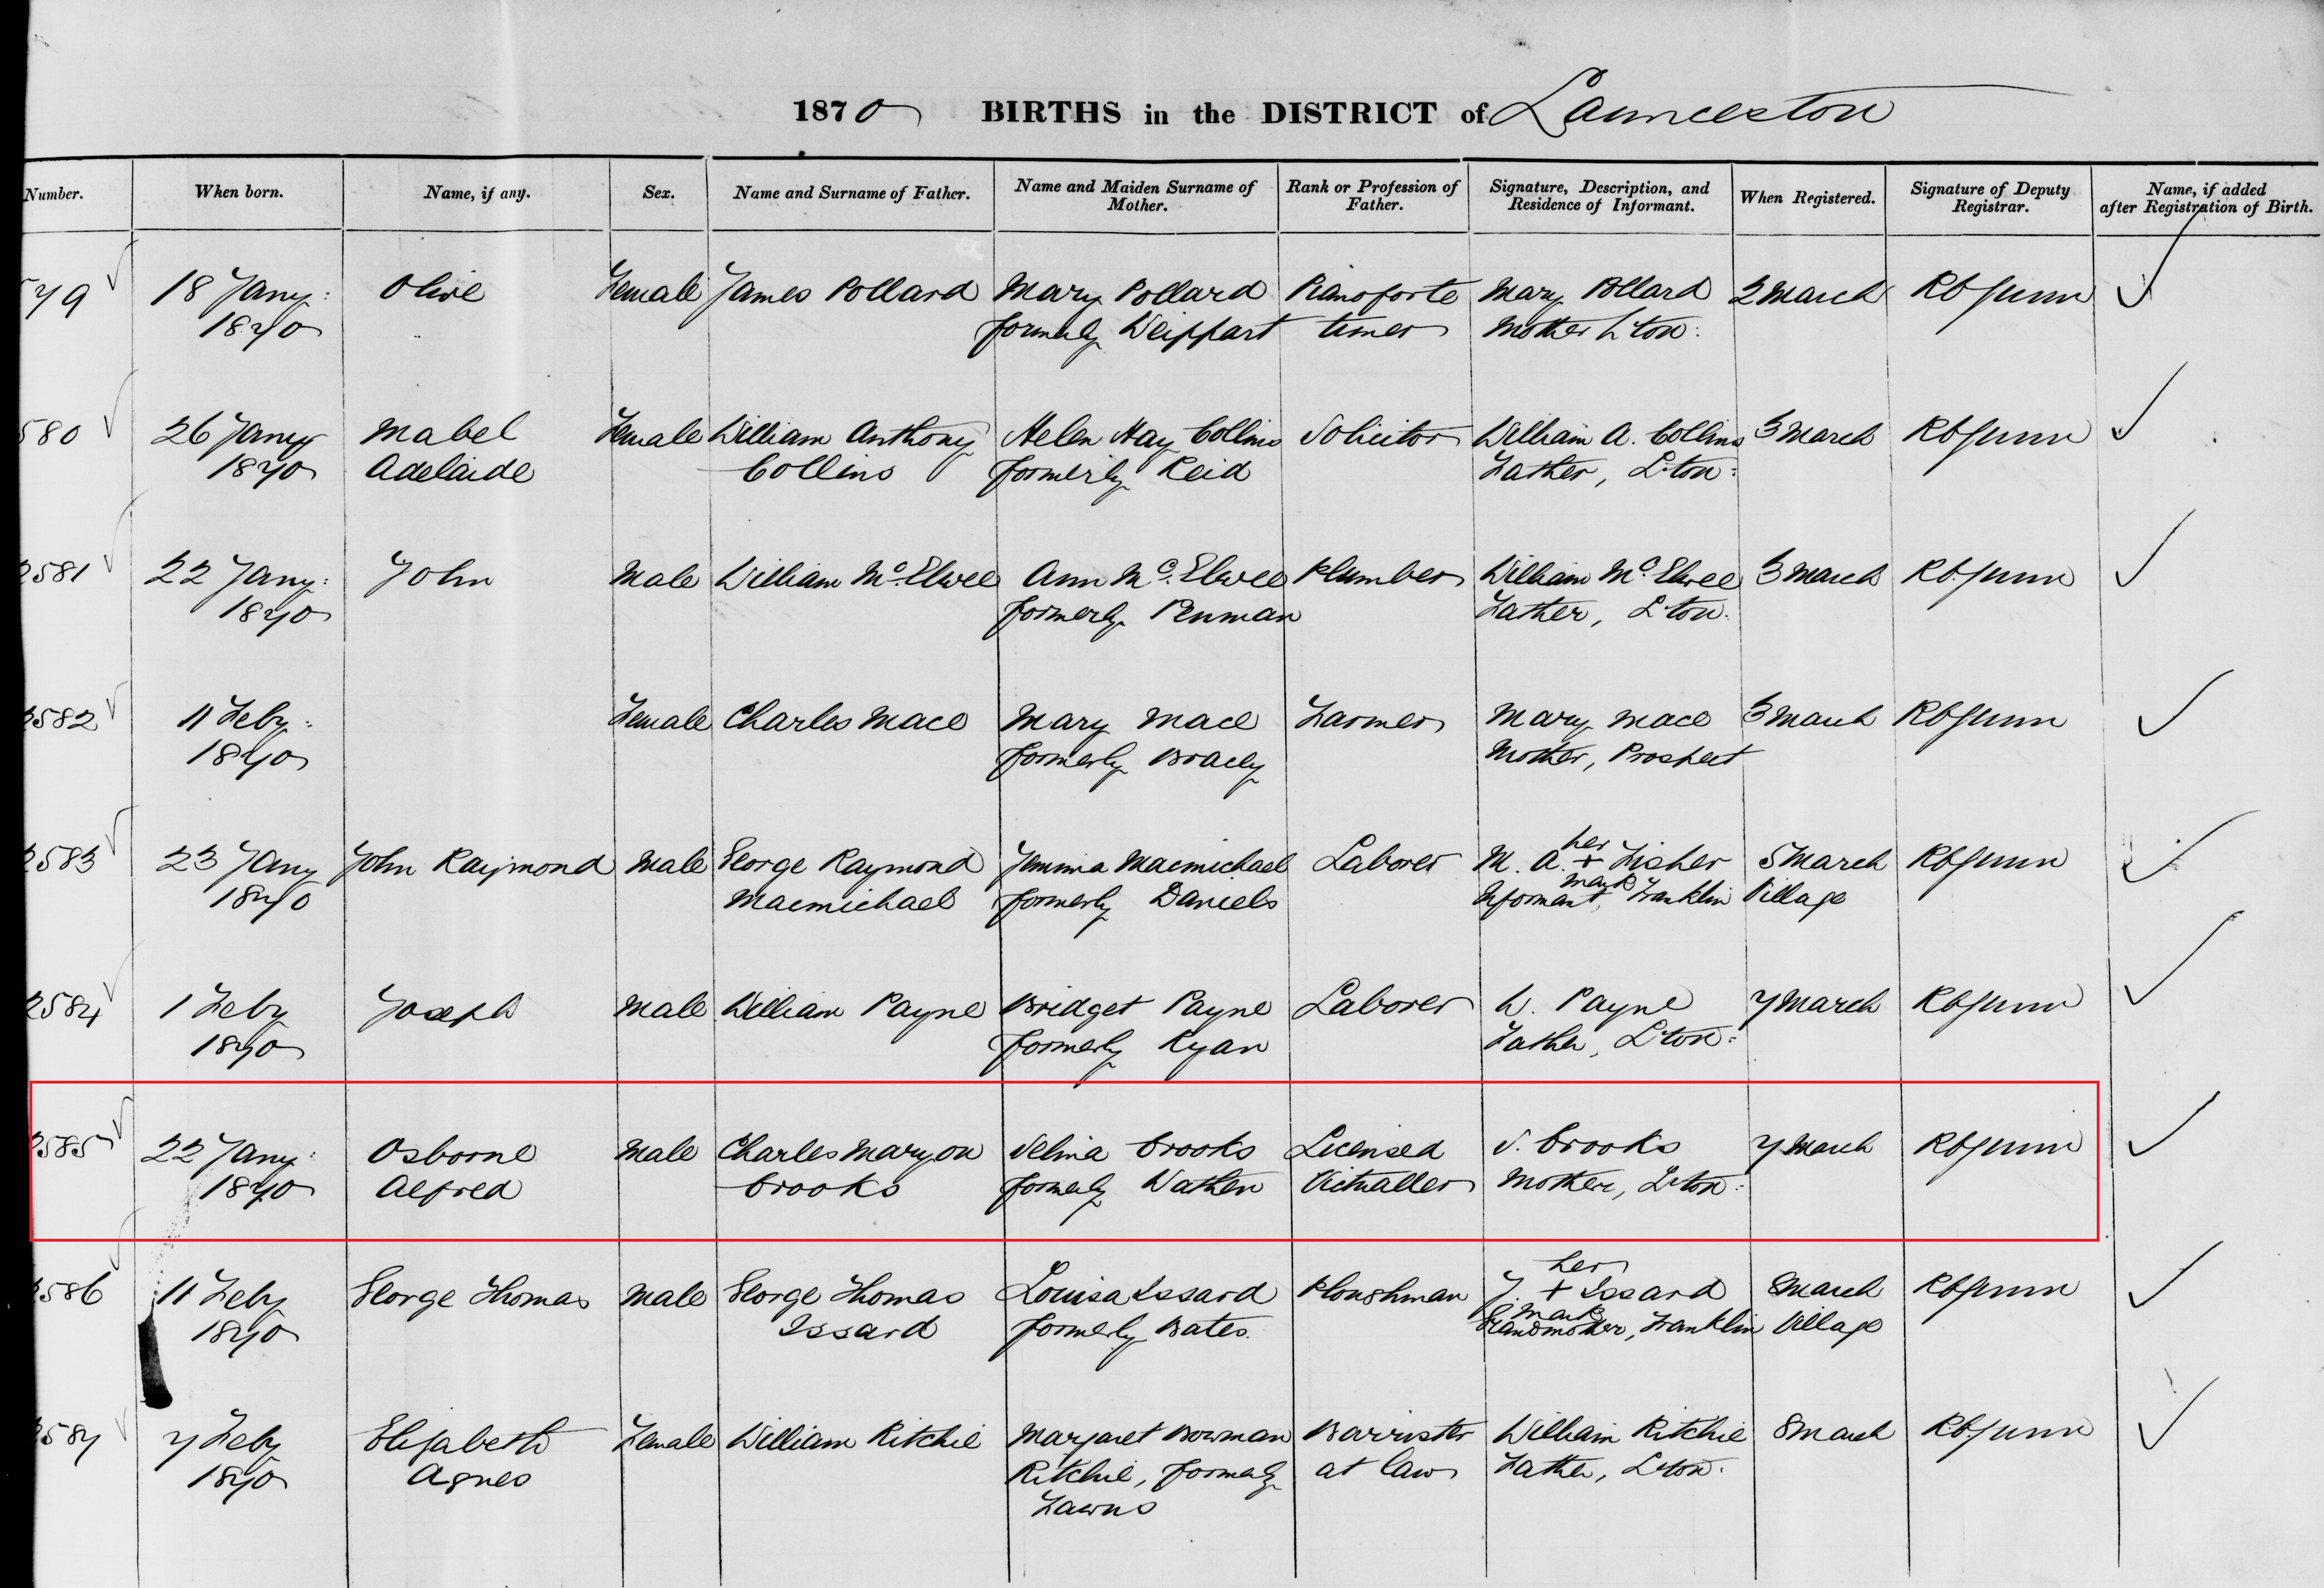 1870 BIRTHS in the DISTRICT of Launceston
Number. When born. Name, if any. Sex. Name and Surname of Father. Name and Maiden Surname of Mother. Rank or Profession of Father. Signature, Description, and Residence of Informant. When Registered. Signature of Deputy Registrar. Name, if added after Registration of Birth.
579 18 Jany: Olive Female James Pollard Mary Pollard Pianoforte Mary Pollard 2 March RCGunn
1870 formerly Weippart tuner Mother L'ton:
580 26 Jany Mabel Female William Anthony Helen Hay Collins Solicitor William A. Collins 3 March RCGunn
1870 Adelaide Collins formerly Reid Father, L'ton:
2581 22 Jany: John Male William Mc.Elwee Ann Mc.Elwee Plumber William Mc.Elwee 3 March RCGunn
1870 formerly Penman Father, L'ton:
2582 11 Feby: Female Charles Mace Mary Mace Farmer Mary Mace 3 March RCGunn
1870 formerly Bracey Mother, Prospect
her
2583 23 Jany John Raymond Male George Raymond Jemima Macmichael Laborer M. A. + Fisher 5 March RCGunn
mark
1870 Macmichael formerly Daniels Informant, Franklin Village
2584 1 Feby Joseph Male William Payne Bridget Payne Laborer W. Payne 7 March RCGunn
1870 formerly Ryan Father, L'ton:
2585 22 Jany: Osborne Male Charles Maryon Selina Brooks Licensed S. Brooks 7 March RCGunn
1870 Alfred Brooks formerly Wathen Victualler Mother, L'ton:
her
2586 11 Feby George Thomas Male George Thomas Louisa Issard Ploughman J. + Issard 8 March RCGunn
mark
1870 Issard formerly Bates. Grandmother, Franklin Village
2587 7 Feby Elizabeth Female William Ritchie Margaret Bowman Barrister William Ritchie 8 March RCGunn
1870 Agnes Ritchie, formerly at law Father, L'ton: